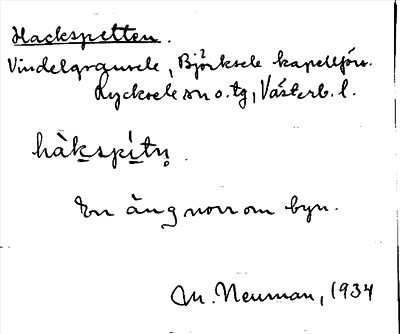 Hackspetten.
Vindelgransele, Björksele kapellförs.
Lycksele sn o. tg, Västerb. l.
hàkspítn̥.
En äng norr om byn.
M. Neuman, 1934